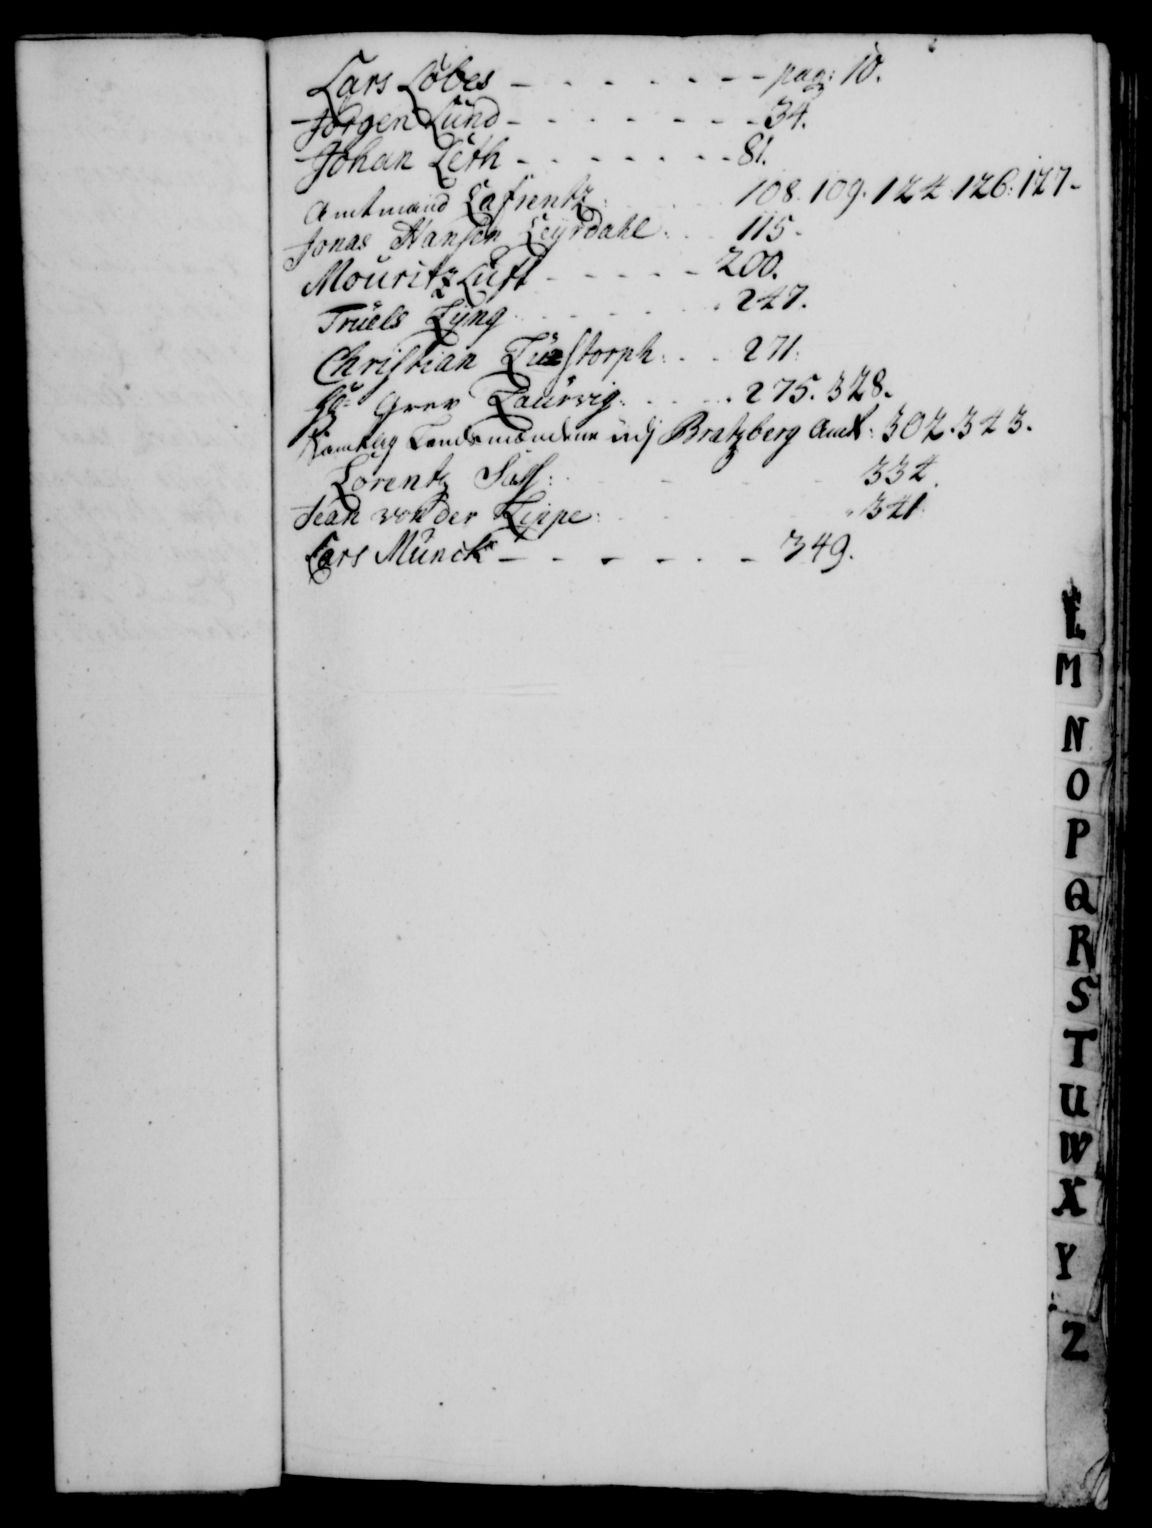 Lars Lobes - - - - - - - pag: 10.
Jørgen Lund - - - - - - - - 34.
Johan Leth - - - - - - - 81.
Amtmand Lafrentz: 108. 109. 124. 126. 127.
Jonas Hansen Leyrdahl: . . 115.
Mouritz Luft - - - - - 200.
Truels Lÿng . . . . . . 247.
Christian Lustorph: . . 271.
Grev Laurvig: . . . 275. 328.
Samtlig Lendsmændene udj Bratzberg Amt: 302. 343.
Lorentz : . . . . 334.
Jean von der Lippe: . . . . 341.
Lars Munck - - - - - - - 349.
L
M
N
O
P
Q
R
S
T
U
W
X
Y
Z